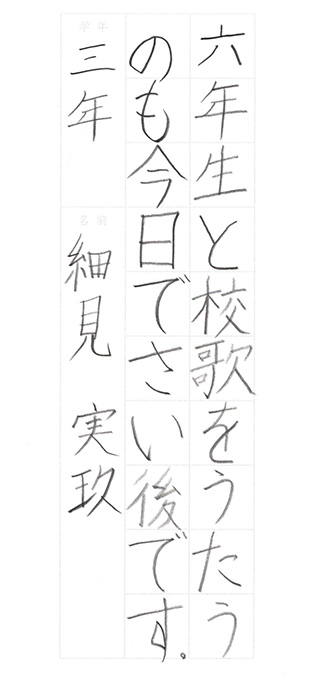 六年生と校歌をうたう
のも今日でさい後です.
学年
三年
名前
細見 実玖